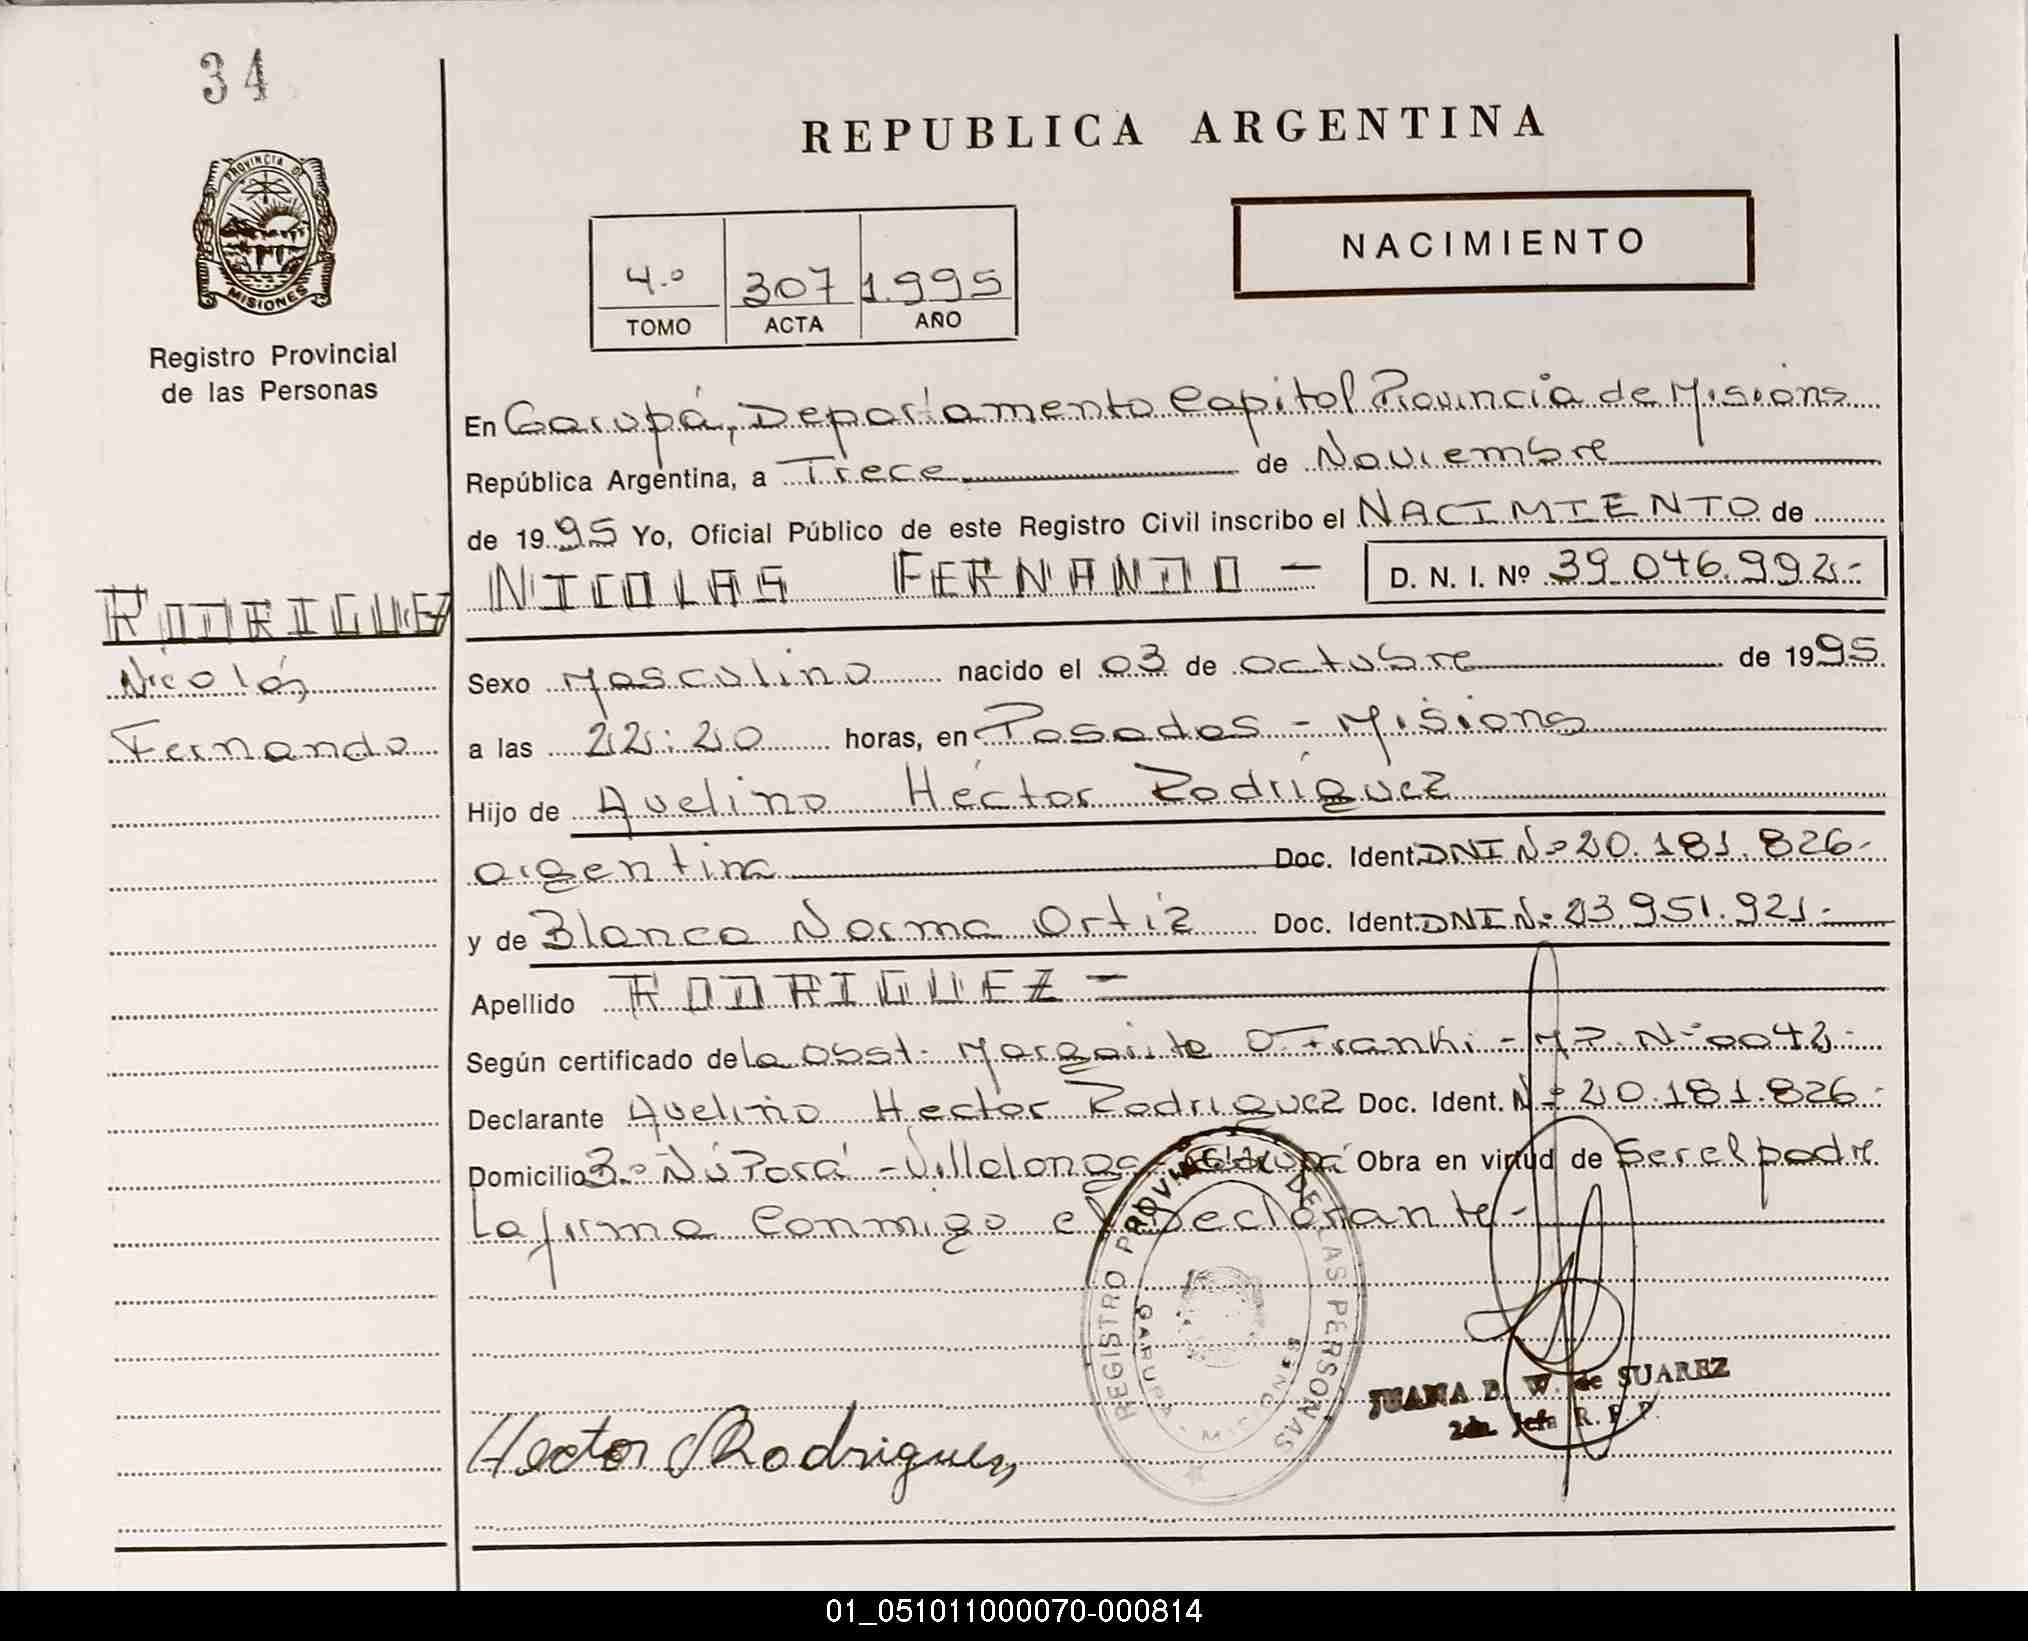 34
PROVINCIA DE
MISIONES
Registro Provincial
de las Personas
REPUBLICA ARGENTINA
NACIMIENTO
4.º 307 1.995
TOMO ACTA AÑO
En Garupá, Departamento Capital Provincia de Misions
República Argentina, a Trece de Noviembre
de 1995 Yo, Oficial Público de este Registro Civil inscribo el NACIMIENTO de
NICOLAS FERNANDO - D. N. I. Nº 39.046.992.-
RODRIGUEZ
Nicolás
Fernando
Sexo Masculino nacido el 03 de octubre de 1995
a las 22:20 horas, en Posadas - Misions
Hijo de Avelino Héctor Rodríguez
argentina Doc. Ident. DNI Nº 20.181.826.-
y de Blanca Norma Ortíz Doc. Ident. DNI Nº 23.951.921.-
Apellido RODRIGUEZ -
Según certificado de la Obst. Margarita O. Franki - MP. Nº 0042.-
Declarante Avelino Hector Rodriguez Doc. Ident. Nº 20.181.826.-
Domicilio Bº Ñú Porá - Villalonga - Garupá Obra en virtud de Ser el padre
La firma Conmigo el Declarante -
REGISTRO PROVINCIAL DE LAS PERSONAS
GARUPA - MISIONES
JUANA B. W. de SUAREZ
2da. Jefa R. P. P.
Hector Rodriguez
01_051011000070-000814